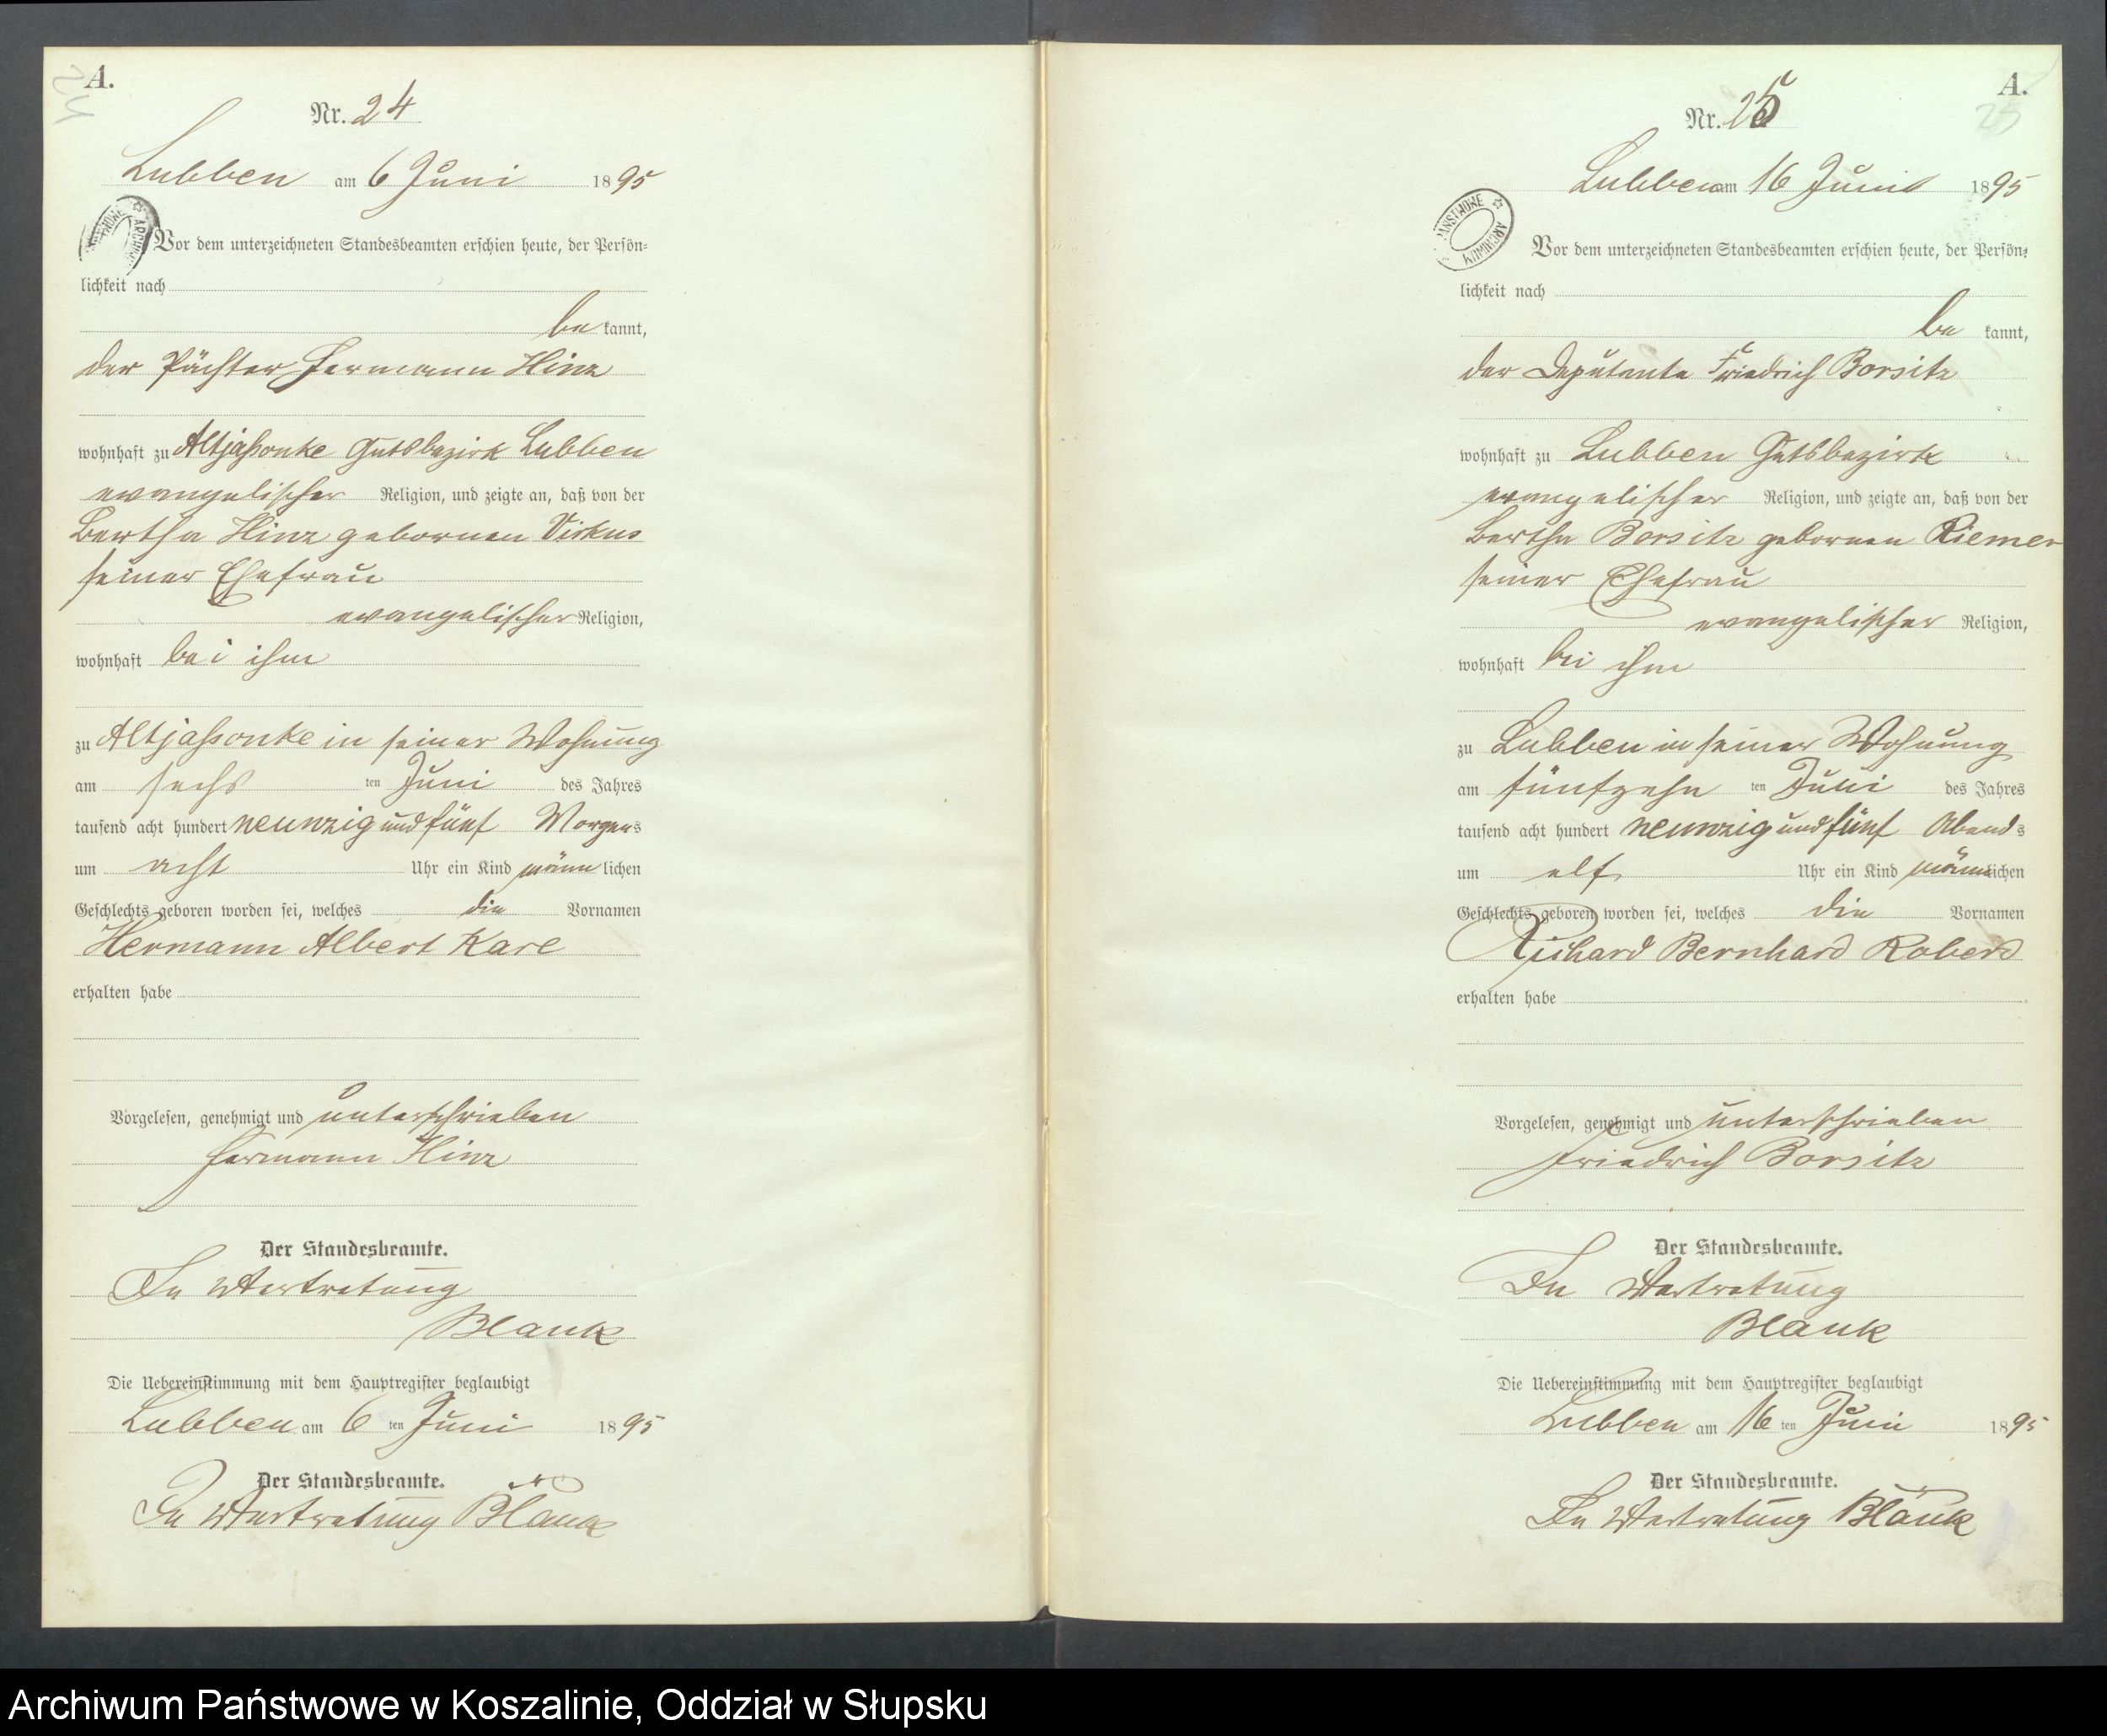 A.
24
Nr. 24
Lubben am 6 Juni 1895
ARCHIWUM
Vor dem unterzeichneten Standesbeamten erschien heute, der Persön=
lichkeit nach
be kannt,
der Pächter Hermann Hinz
wohnhaft zu Altjaßonke Gutsbezirk Lubben
evangelischer Religion, und zeigte an, daß von der
Bertha Hinz gebornen Virkus
seiner Ehefrau
evangelischer Religion,
wohnhaft bei ihm
zu Altjaßonke in seiner Wohnung
am sechs ten Juni des Jahres
tausend acht hundert neunzig und fünf Morgens
um acht Uhr ein Kind männlichen
Geschlechts geboren worden sei, welches die Vornamen
Hermann Albert Karl
erhalten habe
Vorgelesen, genehmigt und unterschrieben
Hermann Hinz
Der Standesbeamte.
In Vertretung
Blank
Die Uebereinstimmung mit dem Hauptregister beglaubigt
Lubben am 6 ten Juni 1895
Der Standesbeamte.
In Vertretung Blank
A.
25
Nr. 25
Lubben am 16 Juni 1895
PAŃSTWOWE ARCHIWUM
Vor dem unterzeichneten Standesbeamten erschien heute, der Persön=
lichkeit nach
be kannt,
der Deputante Friedrich Borsitz
wohnhaft zu Lubben Gutsbezirk
evangelischer Religion, und zeigte an, daß von der
Bertha Borsitz gebornen Riemer
seiner Ehefrau
evangelischer Religion,
wohnhaft bei ihm
zu Lubben in seiner Wohnung
am fünfzehn ten Juni des Jahres
tausend acht hundert neunzig und fünf Abends
um elf Uhr ein Kind männlichen
Geschlechts geboren worden sei, welches die Vornamen
Richard Bernhard Roberd
erhalten habe
Vorgelesen, genehmigt und unterschrieben
Friedrich Borsitz
Der Standesbeamte.
In Vertretung
Blank
Die Uebereinstimmung mit dem Hauptregister beglaubigt
Lubben am 16 ten Juni 1895
Der Standesbeamte.
In Vertretung Blank
Archiwum Państwowe w Koszalinie, Oddział w Słupsku